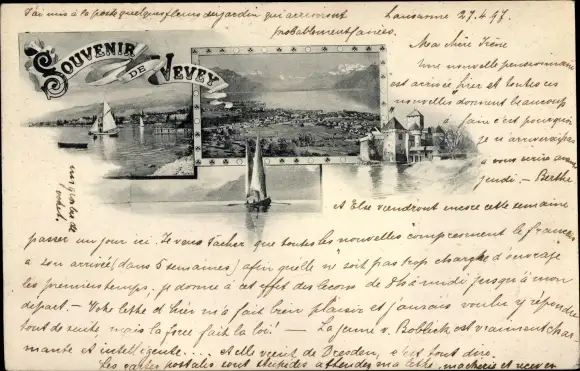 J'ai mis à la poste quelques fleurs du jardin qui arriveront
probablement fanées.
Lausanne 27.4.97.
SOUVENIR
DE
VEVEY
Ma chère Irène
Une nouvelle pensionnaire
est arrivée hier et toutes ces
nouvelles donnent beaucoup
à faire c'est pourquoi
je n'arriverai pas
à vous écrire avant
jeudi. - Berthe
et Else viendront encore cette semaine
passer un jour ici. Je veux tâcher que toutes les nouvelles comprennent le français
à son arrivée (dans 5 semaines) afin qu'elle ne soit pas trop chargée d'ouvrage
les premiers temps; je donne à cet effet des leçons de 8 h à midi jusqu'à mon
départ. - Votre lettre d'hier m'a fait bien plaisir et j'aurais voulu y répondre
tout de suite mais la force fait la loi! - La jeune v. est vraiment char
mante et intelligente.... et elle vient de Dresden, c'est tout dire.
Les cartes postales sont stupides attendez ma lettre, ma chérie et recevez